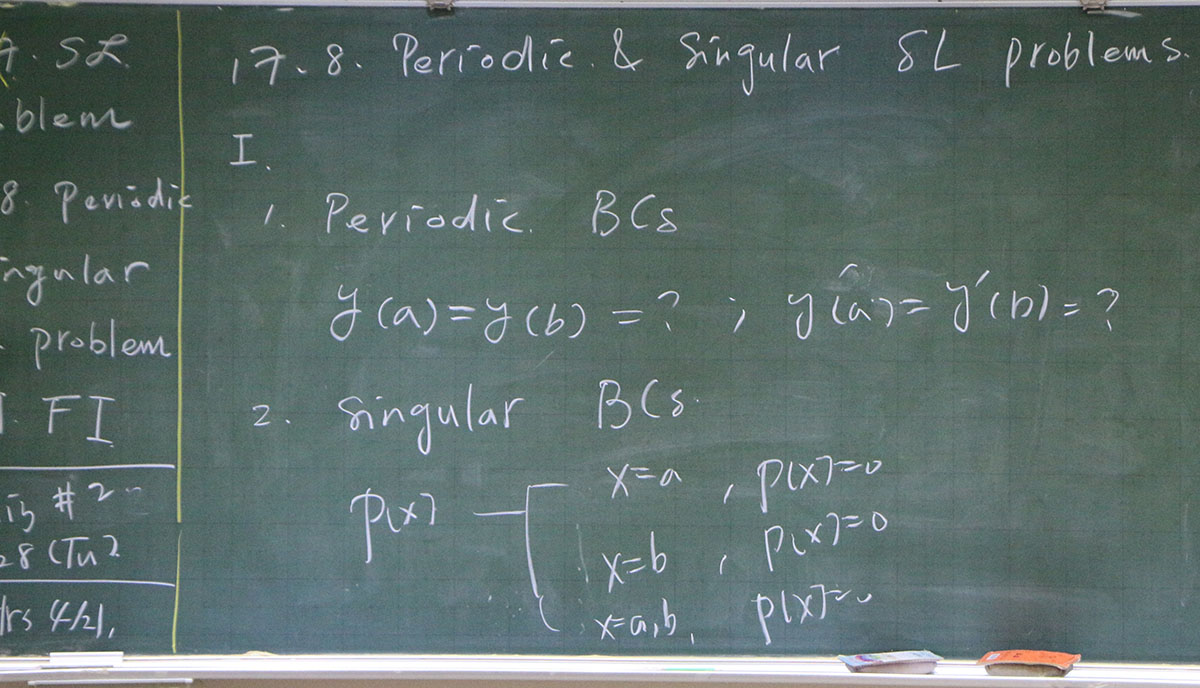 7. SL
blem
8. Periodic
ngular
problem
FI
iz #2
28 (Tu)
Hrs 4/21,
17.8. Periodic & Singular SL problems.
I.
1. Periodic BCs
y(a)=y(b)=? ; y'(a)=y'(b)=?
2. Singular BCs.
p(x) x=a, p(x)=0
x=b, p(x)=0
x=a,b, p(x)=0